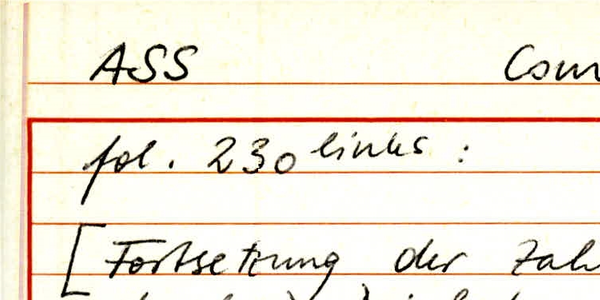 ASS Com
fol. 230 links :
[Fortsetzung der Zah